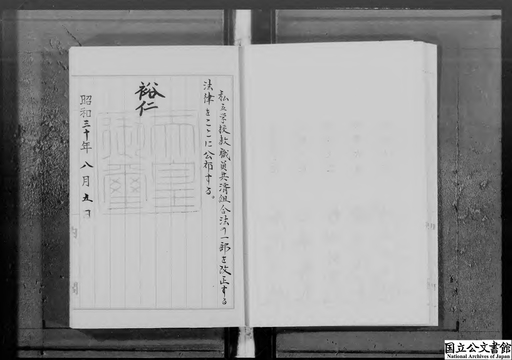 私立学校教職員共済組合法の一部を改正する
法律をここに公布する。
裕仁
天皇御璽
昭和三十年八月五日
国立公文書館
National Archives of Japan